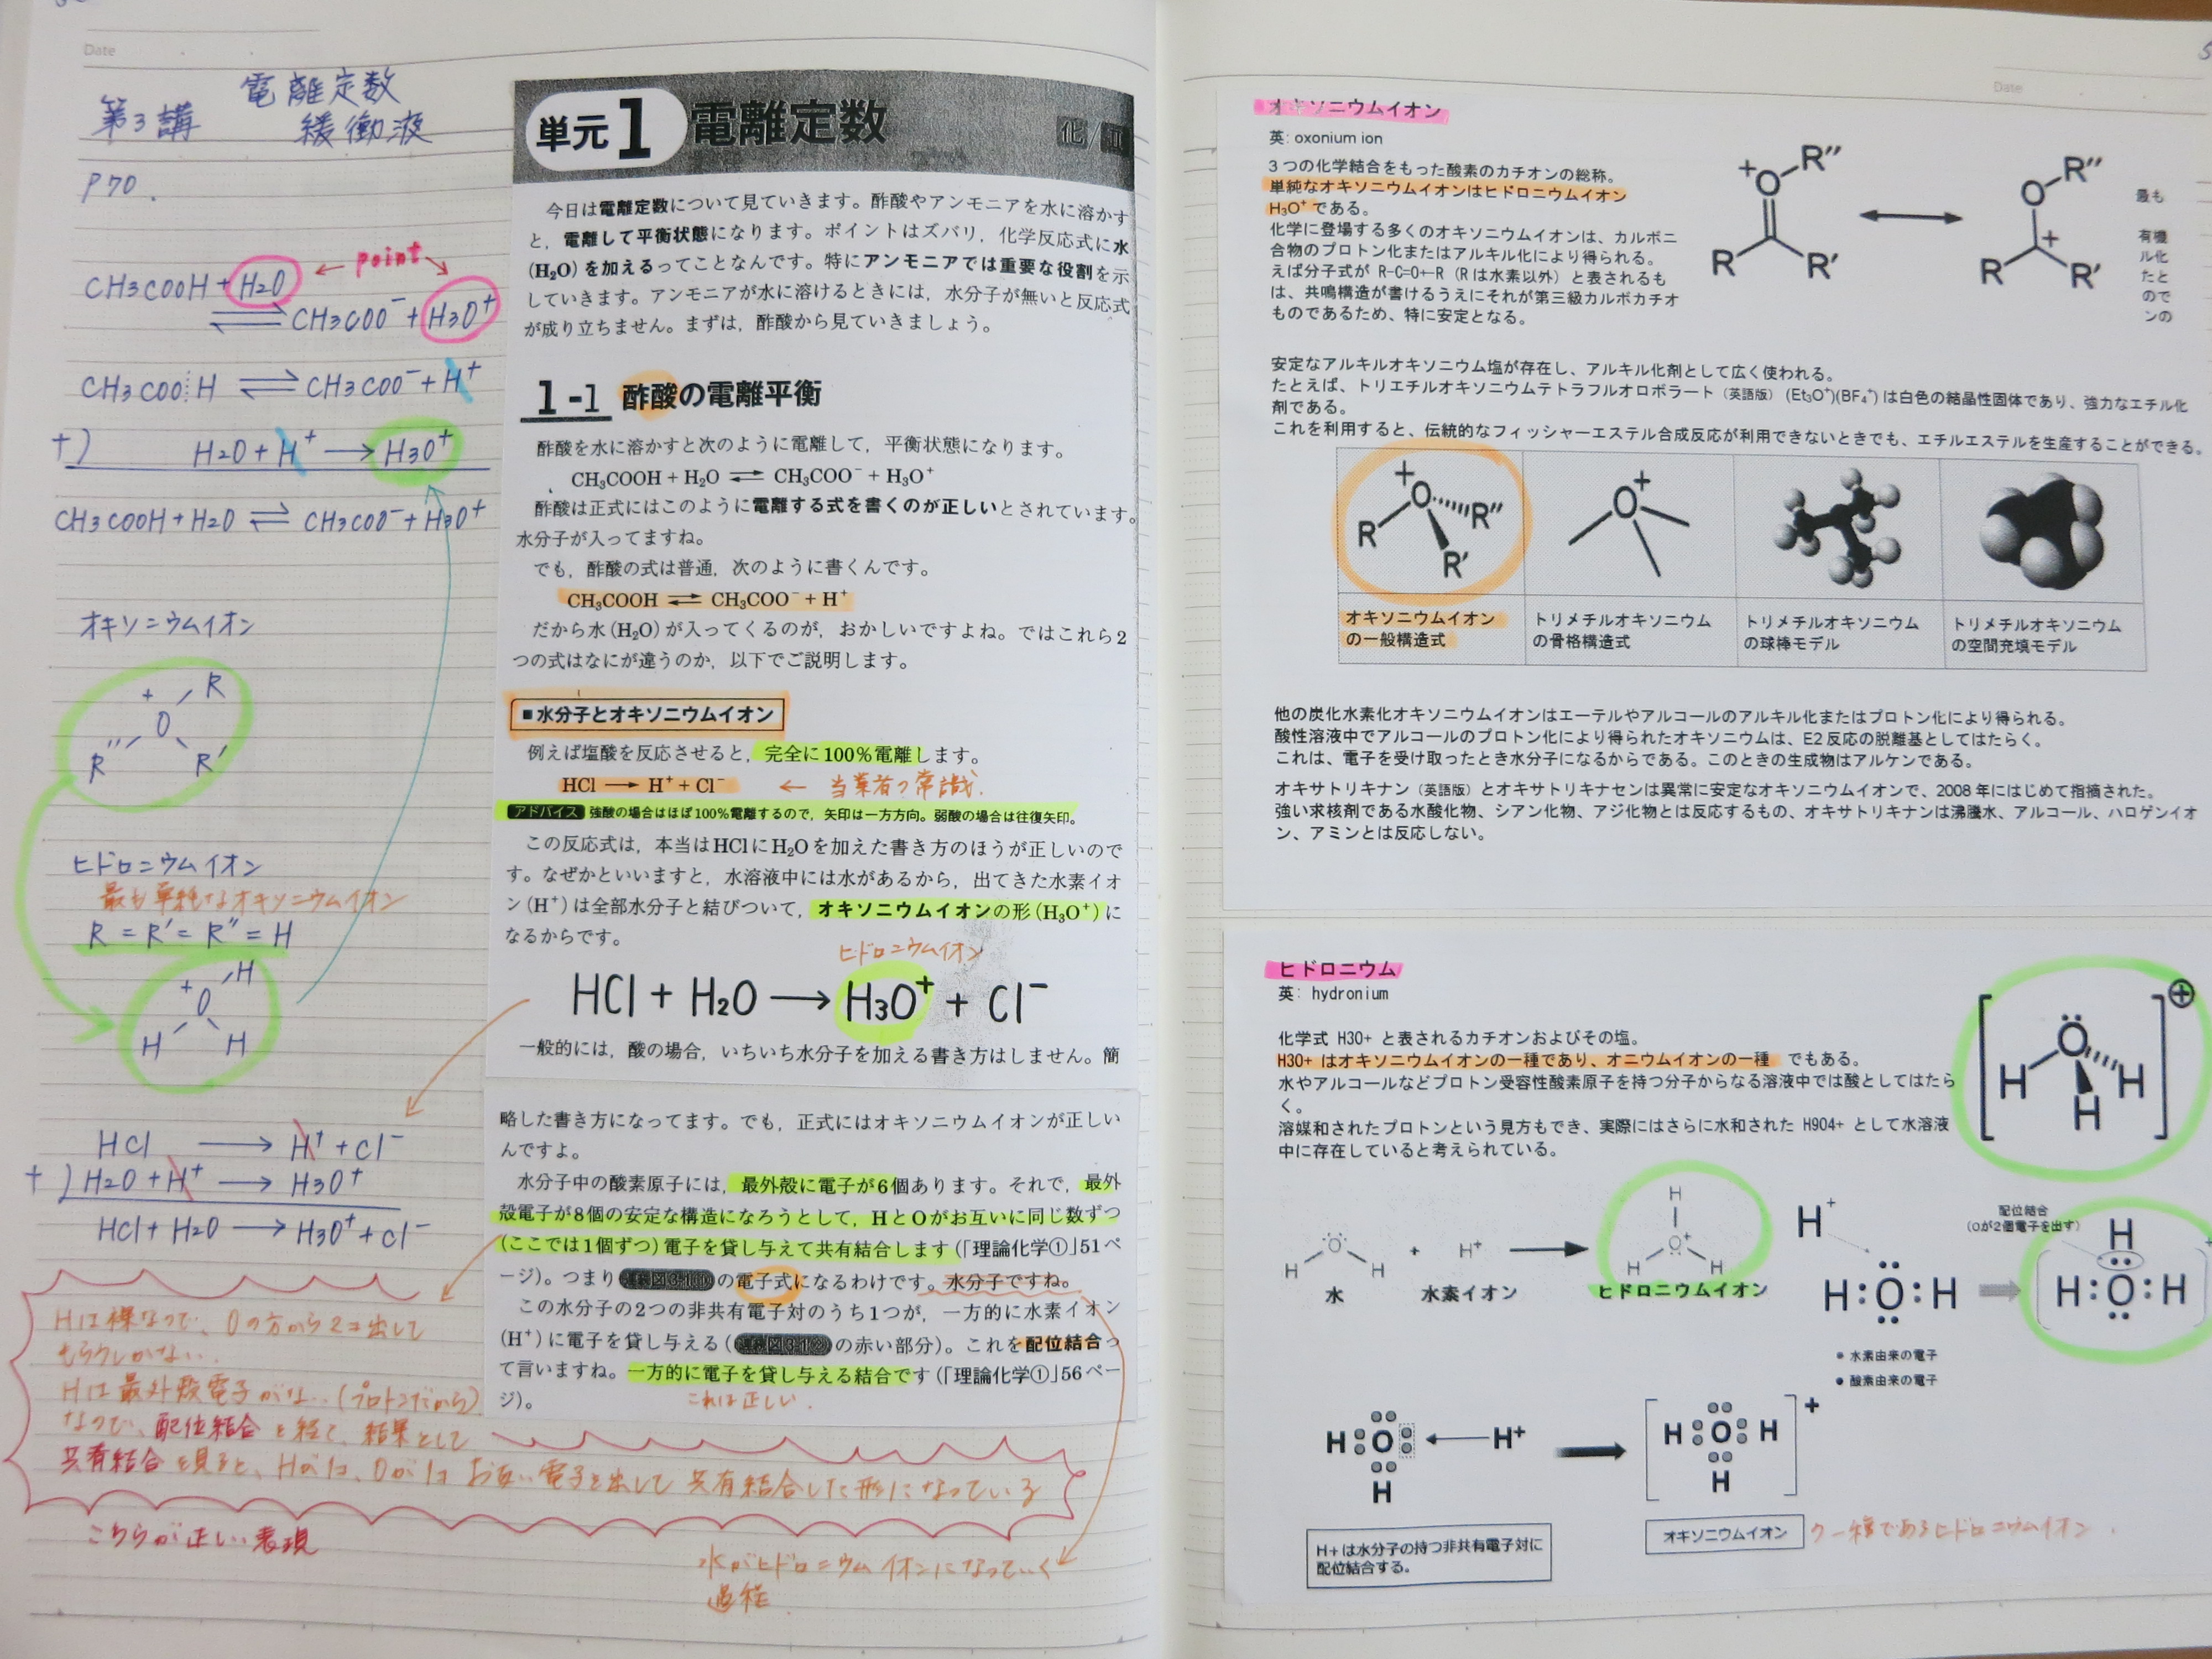 Date
第3講
電離定数
緩衝液
P70.
CH3COOH + H2O ← point →
⇌ CH3COO⁻ + H3O⁺
CH3COO H ⇌ CH3COO⁻ + H⁺
+) H2O + H⁺ → H3O⁺
CH3COOH + H2O ⇌ CH3COO⁻ + H3O⁺
オキソニウムイオン
+ R
O
R″ R′
ヒドロニウムイオン
最も単純なオキソニウムイオン
R = R′ = R″ = H
+ H
O
H H
HCl → H⁺ + Cl⁻
+) H2O + H⁺ → H3O⁺
HCl + H2O → H3O⁺ + Cl⁻
Hは裸なので、Oの方から2コ出して
もらうしかない.
Hは最外殻電子がない.(プロトンだから)
なので、配位結合を経て、結果として
共有結合を見ると、Hが1コ、Oが1コ お互い電子を出して共有結合した形になっている
こちらが正しい表現
水がヒドロニウムイオンになっていく
過程
単元1 電離定数 化/II
今日は電離定数について見ていきます。酢酸やアンモニアを水に溶かす
と，電離して平衡状態になります。ポイントはズバリ，化学反応式に水
(H₂O)を加えるってことなんです。特にアンモニアでは重要な役割を示
していきます。アンモニアが水に溶けるときには，水分子が無いと反応式
が成り立ちません。まずは，酢酸から見ていきましょう。
1-1 酢酸の電離平衡
酢酸を水に溶かすと次のように電離して，平衡状態になります。
CH₃COOH + H₂O ⇌ CH₃COO⁻ + H₃O⁺
酢酸は正式にはこのように電離する式を書くのが正しいとされています。
水分子が入ってますね。
でも，酢酸の式は普通，次のように書くんです。
CH₃COOH ⇌ CH₃COO⁻ + H⁺
だから水(H₂O)が入ってくるのが，おかしいですよね。ではこれら2
つの式はなにが違うのか，以下でご説明します。
■水分子とオキソニウムイオン
例えば塩酸を反応させると，完全に100％電離します。
HCl → H⁺ + Cl⁻ ← 当業者の常識.
アドバイス 強酸の場合はほぼ100％電離するので，矢印は一方方向。弱酸の場合は往復矢印。
この反応式は，本当はHClにH₂Oを加えた書き方のほうが正しいので
す。なぜかといいますと，水溶液中には水があるから，出てきた水素イオ
ン(H⁺)は全部水分子と結びついて，オキソニウムイオンの形(H₃O⁺)に
なるからです。
ヒドロニウムイオン
HCl + H₂O → H₃O⁺ + Cl⁻
一般的には，酸の場合，いちいち水分子を加える書き方はしません。簡
略した書き方になってます。でも，正式にはオキソニウムイオンが正しい
んですよ。
水分子中の酸素原子には，最外殻に電子が6個あります。それで，最外
殻電子が8個の安定な構造になろうとして，HとOがお互いに同じ数ずつ
(ここでは1個ずつ)電子を貸し与えて共有結合します(「理論化学①」51ペ
ージ)。つまり 連続図3-1① の電子式になるわけです。水分子ですね。
この水分子の2つの非共有電子対のうち1つが，一方的に水素イオン
(H⁺)に電子を貸し与える( 連続図3-1② の赤い部分)。これを配位結合っ
て言いますね。一方的に電子を貸し与える結合です(「理論化学①」56ペー
ジ)。 これは正しい.
Date
オキソニウムイオン
英: oxonium ion
3つの化学結合をもった酸素のカチオンの総称。
単純なオキソニウムイオンはヒドロニウムイオン 最も
H₃O⁺ である。
化学に登場する多くのオキソニウムイオンは、カルボニ 有機
合物のプロトン化またはアルキル化により得られる。 ル化
えば分子式が R-C=O⁺-R (R は水素以外) と表されるも たと
は、共鳴構造が書けるうえにそれが第三級カルボカチオ ので
ものであるため、特に安定となる。 ンの
+ R″
O
R R′
R″
O
+
R R′
安定なアルキルオキソニウム塩が存在し、アルキル化剤として広く使われる。
たとえば、トリエチルオキソニウムテトラフルオロボラート (英語版) (Et₃O⁺)(BF₄⁻) は白色の結晶性固体であり、強力なエチル化
剤である。
これを利用すると、伝統的なフィッシャーエステル合成反応が利用できないときでも、エチルエステルを生産することができる。
+
O R″
R R′
O+
オキソニウムイオン
の一般構造式
トリメチルオキソニウム
の骨格構造式
トリメチルオキソニウム
の球棒モデル
トリメチルオキソニウム
の空間充填モデル
他の炭化水素化オキソニウムイオンはエーテルやアルコールのアルキル化またはプロトン化により得られる。
酸性溶液中でアルコールのプロトン化により得られたオキソニウムは、E2反応の脱離基としてはたらく。
これは、電子を受け取ったとき水分子になるからである。このときの生成物はアルケンである。
オキサトリキナン (英語版) とオキサトリキナセンは異常に安定なオキソニウムイオンで、2008 年にはじめて指摘された。
強い求核剤である水酸化物、シアン化物、アジ化物とは反応するもの、オキサトリキナンは沸騰水、アルコール、ハロゲンイオ
ン、アミンとは反応しない。
ヒドロニウム
英: hydronium
化学式 H3O+ と表されるカチオンおよびその塩。
H3O+ はオキソニウムイオンの一種であり、オニウムイオンの一種 でもある。
水やアルコールなどプロトン受容性酸素原子を持つ分子からなる溶液中では酸としてはたら
く。
溶媒和されたプロトンという見方もでき、実際にはさらに水和された H9O4+ として水溶液
中に存在していると考えられている。
⊕
O
H H
H
H
O + H⁺ → O⁺
H H H H
水 水素イオン ヒドロニウムイオン
H⁺
配位結合
(Oが2個電子を出す)
H
H:O:H H:O:H
水素由来の電子
酸素由来の電子
H O ← H⁺ → H O H +
H H
H+は水分子の持つ非共有電子対に
配位結合する。
オキソニウムイオン の一種であるヒドロニウムイオン.